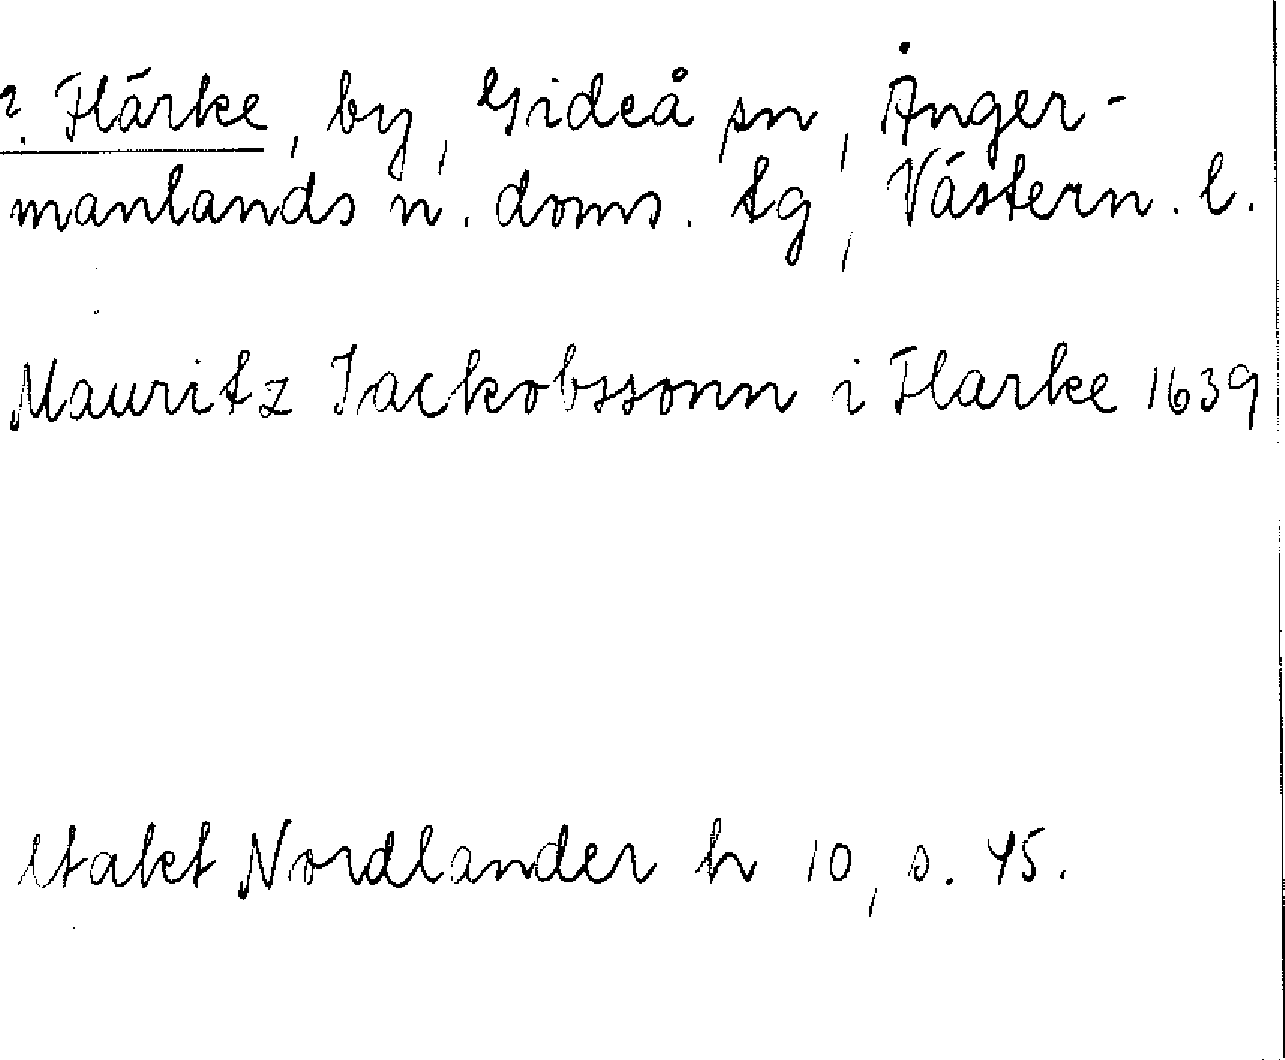 ? Flärke, by, Gideå sn, Ånger-
manlands n. doms. tg, Västern. l.
Mauritz Jackobssonn i Flarke 1639
Utakt Nordlander h 10, s. 45.